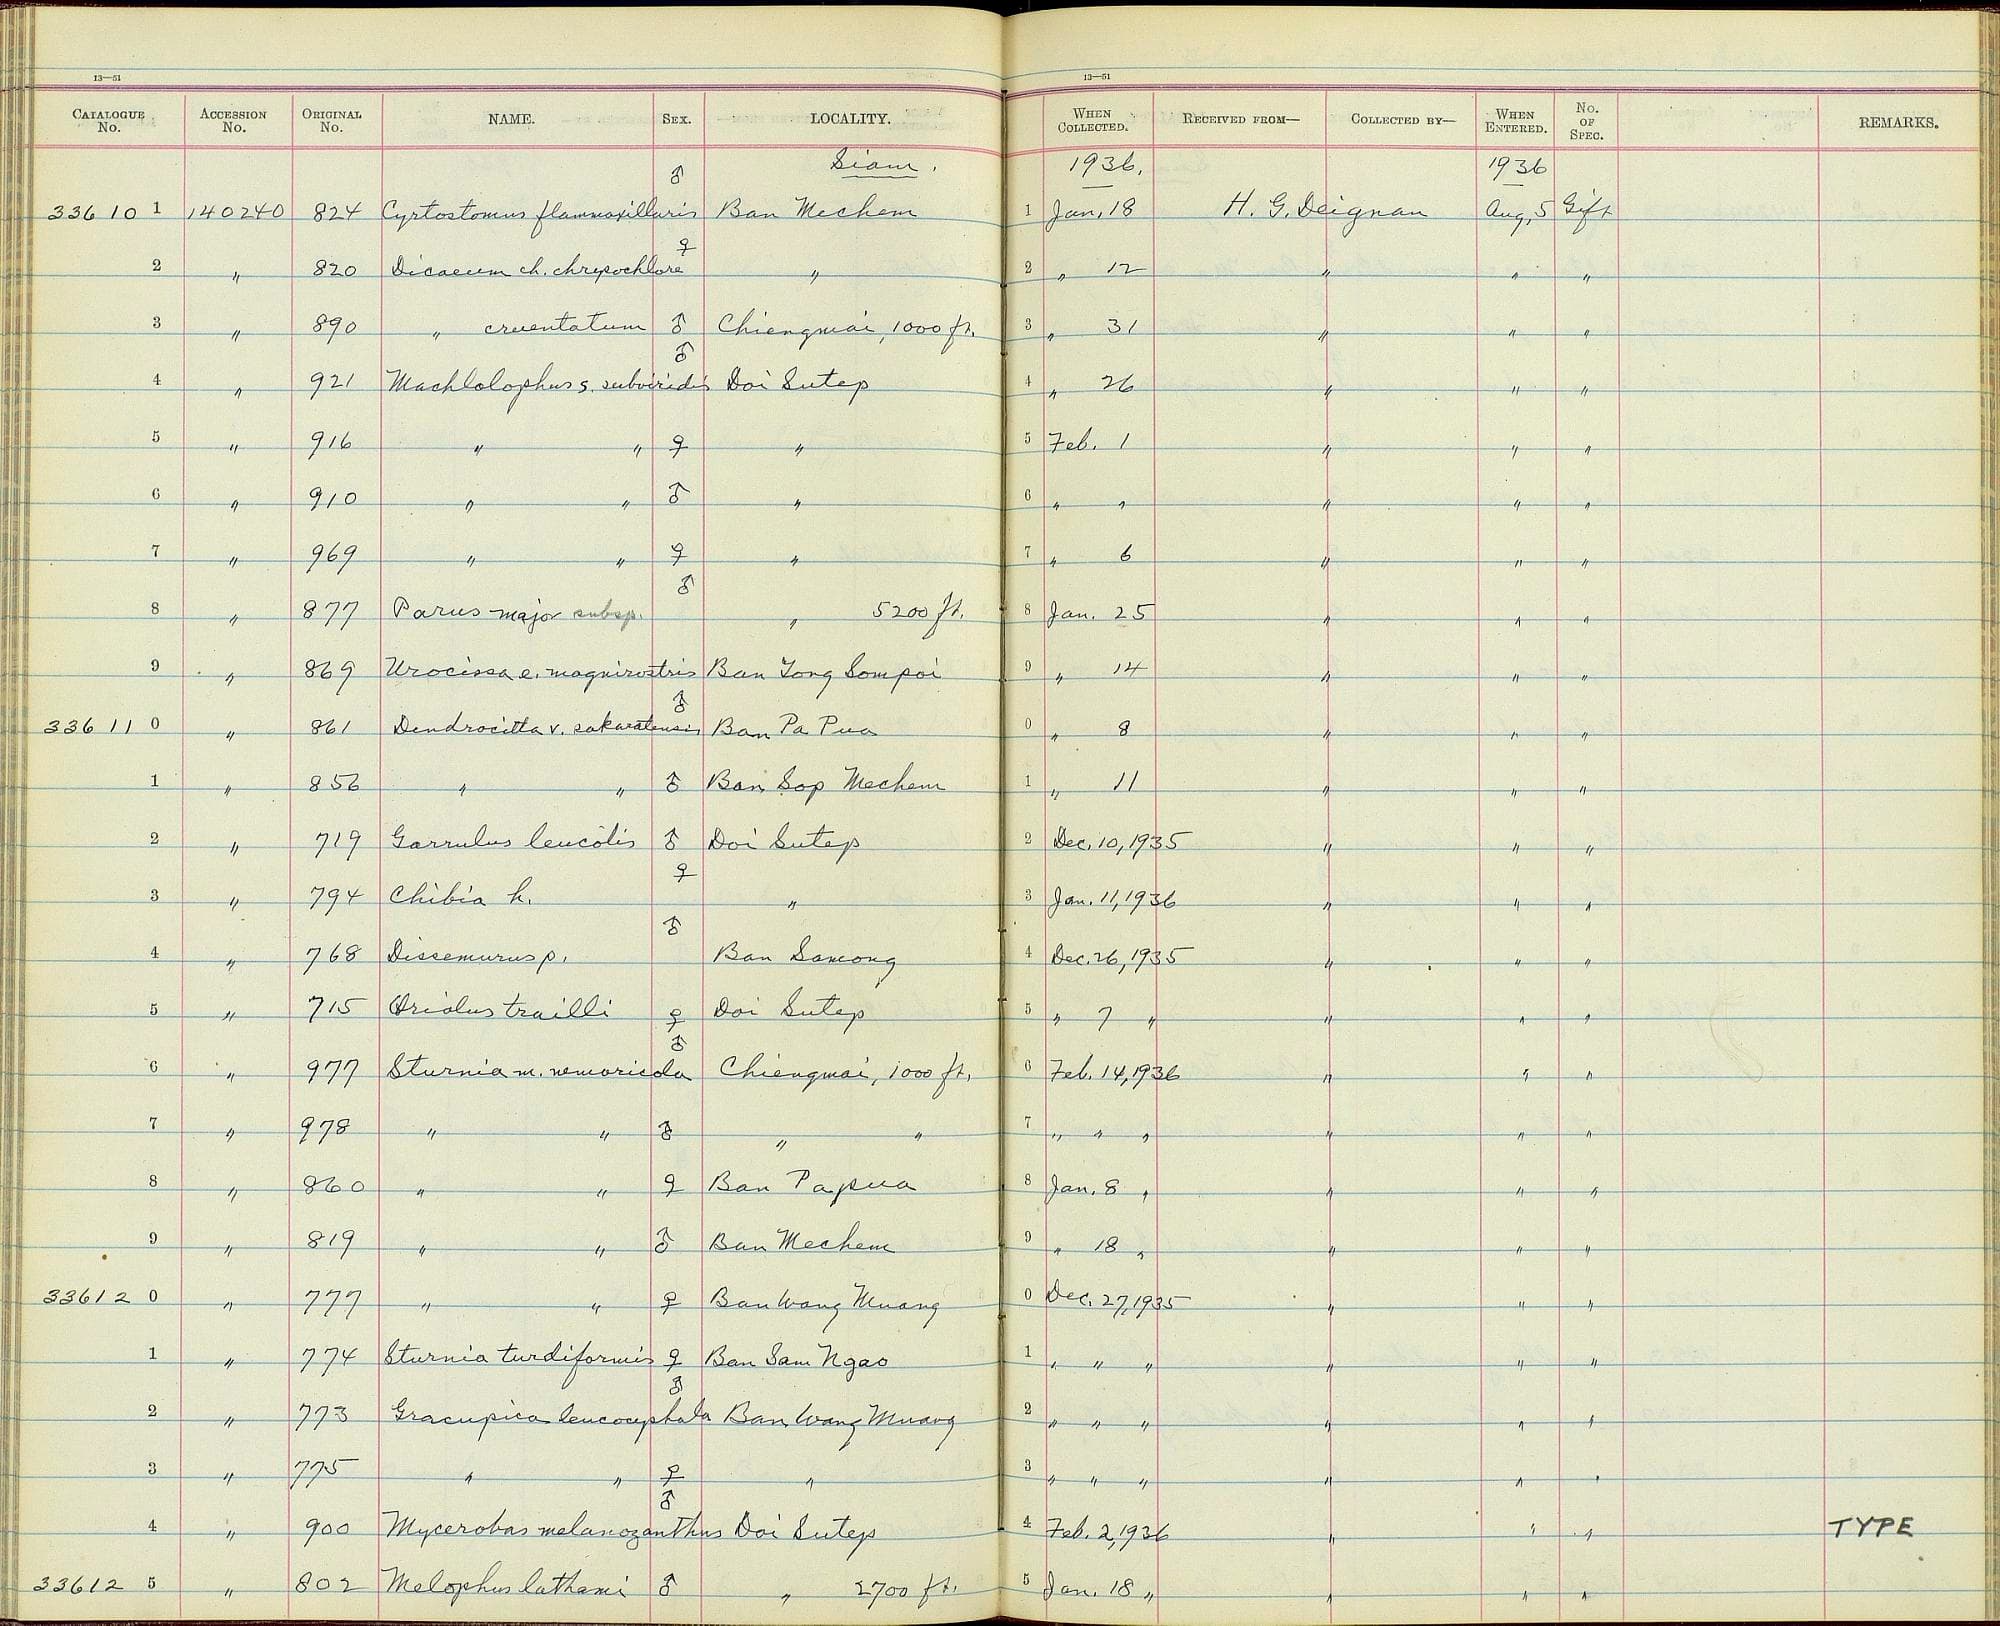 13—51 13—51
CATALOGUE No. ACCESSION No. ORIGINAL No. NAME. SEX. LOCALITY. WHEN COLLECTED. RECEIVED FROM— COLLECTED BY— WHEN ENTERED. No. OF SPEC. REMARKS.
Siam. 1936. 1936
33610 1 140240 824 Cyrtostomus flammaxillaris ♂ Ban Mechem 1 Jan. 18 H. G. Deignan Aug. 5 Gift
2 " 820 Dicaeum ch. chrysochlore ♀ " 2 " 12 " " "
3 " 890 " cruentatum ♂ Chiengmai, 1000 ft. 3 " 31 " " "
4 " 921 Machlolophus s. subviridis ♂ Doi Sutep 4 " 26 " " "
5 " 916 " " ♀ " 5 Feb. 1 " " "
6 " 910 " " ♂ " 6 " " " " "
7 " 969 " " ♀ " 7 " 6 " " "
8 " 877 Parus major subsp. ♂ " 5200 ft. 8 Jan. 25 " " "
9 " 869 Urocissa e. magnirostris Ban Tong Sompoi 9 " 14 " " "
33611 0 " 861 Dendrocitta v. sakaratensis ♂ Ban Pa Pua 0 " 8 " " "
1 " 856 " " ♂ Ban Sop Mechem 1 " 11 " " "
2 " 719 Garrulus leucotis ♂ Doi Sutep 2 Dec. 10, 1935 " " "
3 " 794 Chibia h. ♀ " 3 Jan. 11, 1936 " " "
4 " 768 Dissemurus p. ♂ Ban Samong 4 Dec. 26, 1935 " " "
5 " 715 Oriolus trailli ♀ Doi Sutep 5 " 7 " " " "
6 " 977 Sturnia m. nemoricola ♂ Chiengmai, 1000 ft. 6 Feb. 14, 1936 " " "
7 " 978 " " ♂ " " 7 " " " " " "
8 " 860 " " ♀ Ban Papua 8 Jan. 8 " " " "
9 " 819 " " ♂ Ban Mechem 9 " 18 " " " "
33612 0 " 777 " " ♀ Ban Wang Muang 0 Dec. 27, 1935 " " "
1 " 774 Sturnia turdiformis ♀ Ban Sam Ngao 1 " " " " " "
2 " 773 Gracupica leucocephala ♂ Ban Wang Muang 2 " " " " " "
3 " 775 " " ♀ " 3 " " " " " "
4 " 900 Mycerobas melanozanthus ♂ Doi Sutep 4 Feb. 2, 1936 " " " TYPE
33612 5 " 802 Melophus lathami ♂ " 2700 ft. 5 Jan. 18 " " " "